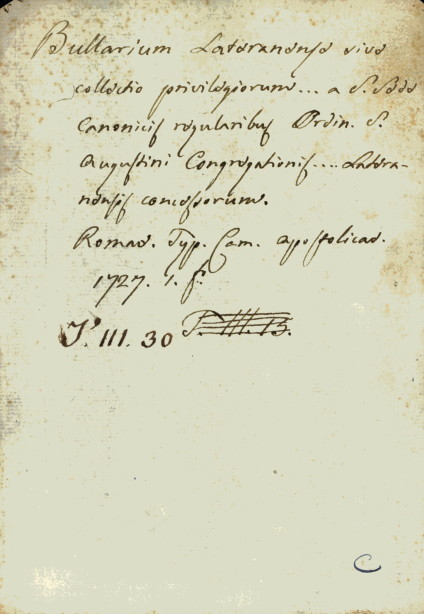 Bullarium Lateranense sive
collectio privilegiorum... a S. Sede
Canonicis regularibus Ordin. S.
Augustini Congregationis.... Latera-
nensis concessorum.
Romae. Typ. Cam. apostolicae.
1727. 1. f.
J. III. 30 J. III. 13.
C